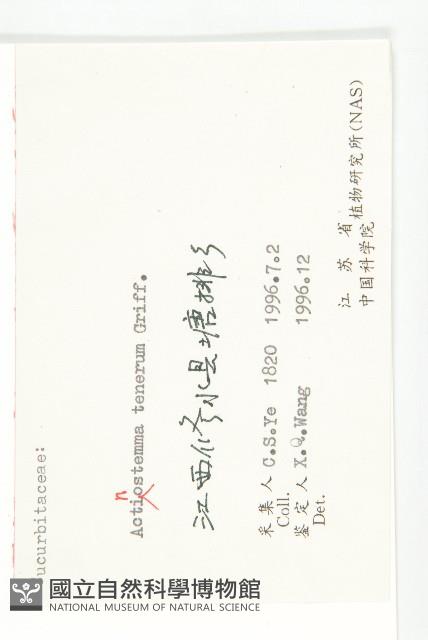 ucurbitaceae:
n
Actiostemma tenerum Griff.
江西修水县塘排乡
采集人 C.S.Ye 1820 1996.7.2
Coll.
鉴定人 X.Q.Wang 1996.12
Det.
江苏省植物研究所(NAS)
中国科学院
國立自然科學博物館
NATIONAL MUSEUM OF NATURAL SCIENCE